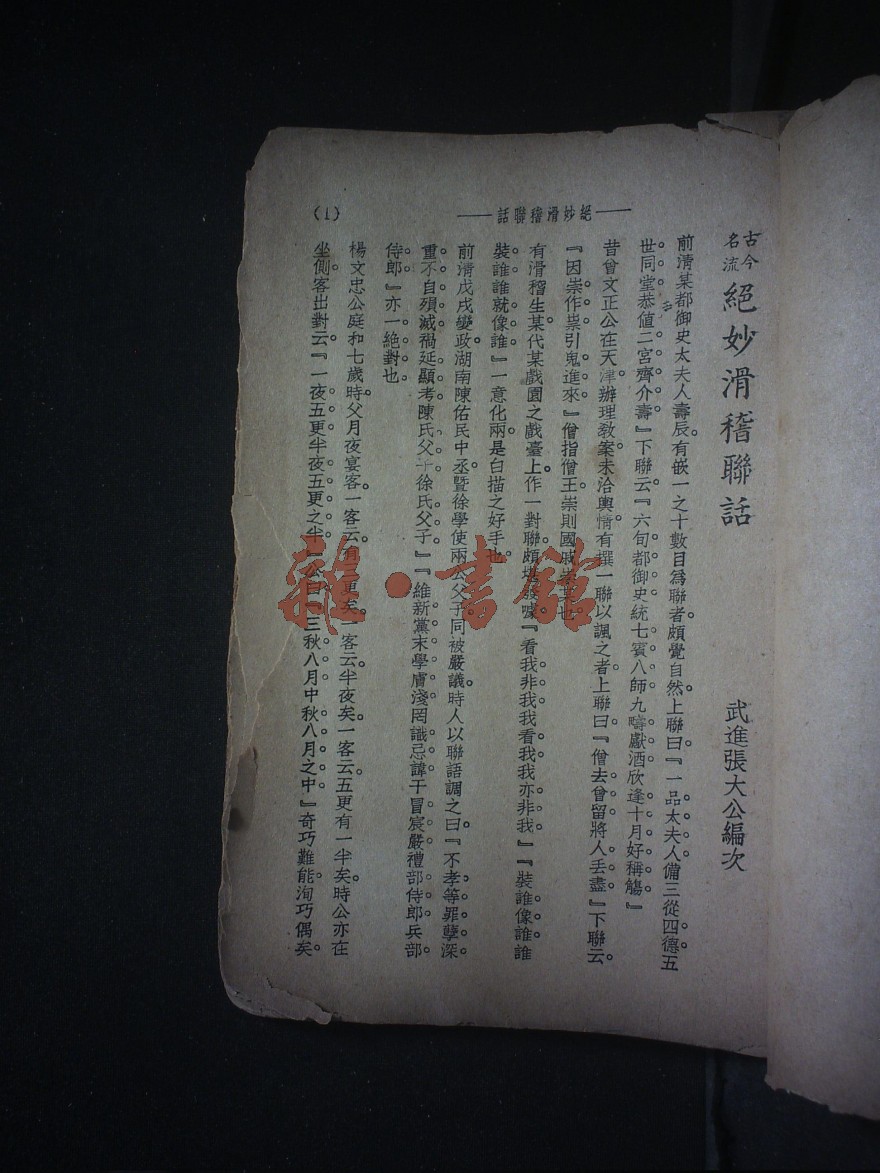 ——絕妙滑稽聯話——
(1)
古今
名流
絕妙滑稽聯話
武進張大公編次
前清某都御史太夫人壽辰。有嵌一之十數目為聯者頗覺自然上聯曰『一品太夫人備三從四德五
世同堂恭值二宮齊介壽』下聯云『六旬都御史統七賓八師九疇獻酒欣逢十月好稱觴』
昔曾文正公在天津辦理教案未洽輿情有撰一聯以諷之者上聯曰『僧去曾留將人丟盡』下聯云
『因崇作祟引鬼進來』僧指僧王崇則國戚崇某也
有滑稽生某代某戲園之戲臺上作一對聯頗堪發噱『看我非我我看我我亦非我』『裝誰像誰誰
裝誰誰就像誰』一意化兩是白描之好手也
前清戊戌變政湖南陳佑民中丞暨徐學使兩公父子同被嚴議時人以聯語調之曰『不孝等罪孽深
重不自殞滅禍延顯考陳氏父子徐氏父子』『維新黨末學膚淺罔識忌諱干冒宸嚴禮部侍郎兵部
侍郎』亦一絕對也
楊文忠公庭和七歲時父月夜宴客一客云有更矣一客云半夜矣一客云五更有一半矣時公亦在
坐側客出對云『一夜五更半夜五更之半』公曰『三秋八月中秋八月之中』奇巧難能洵巧偶矣
雜·書館